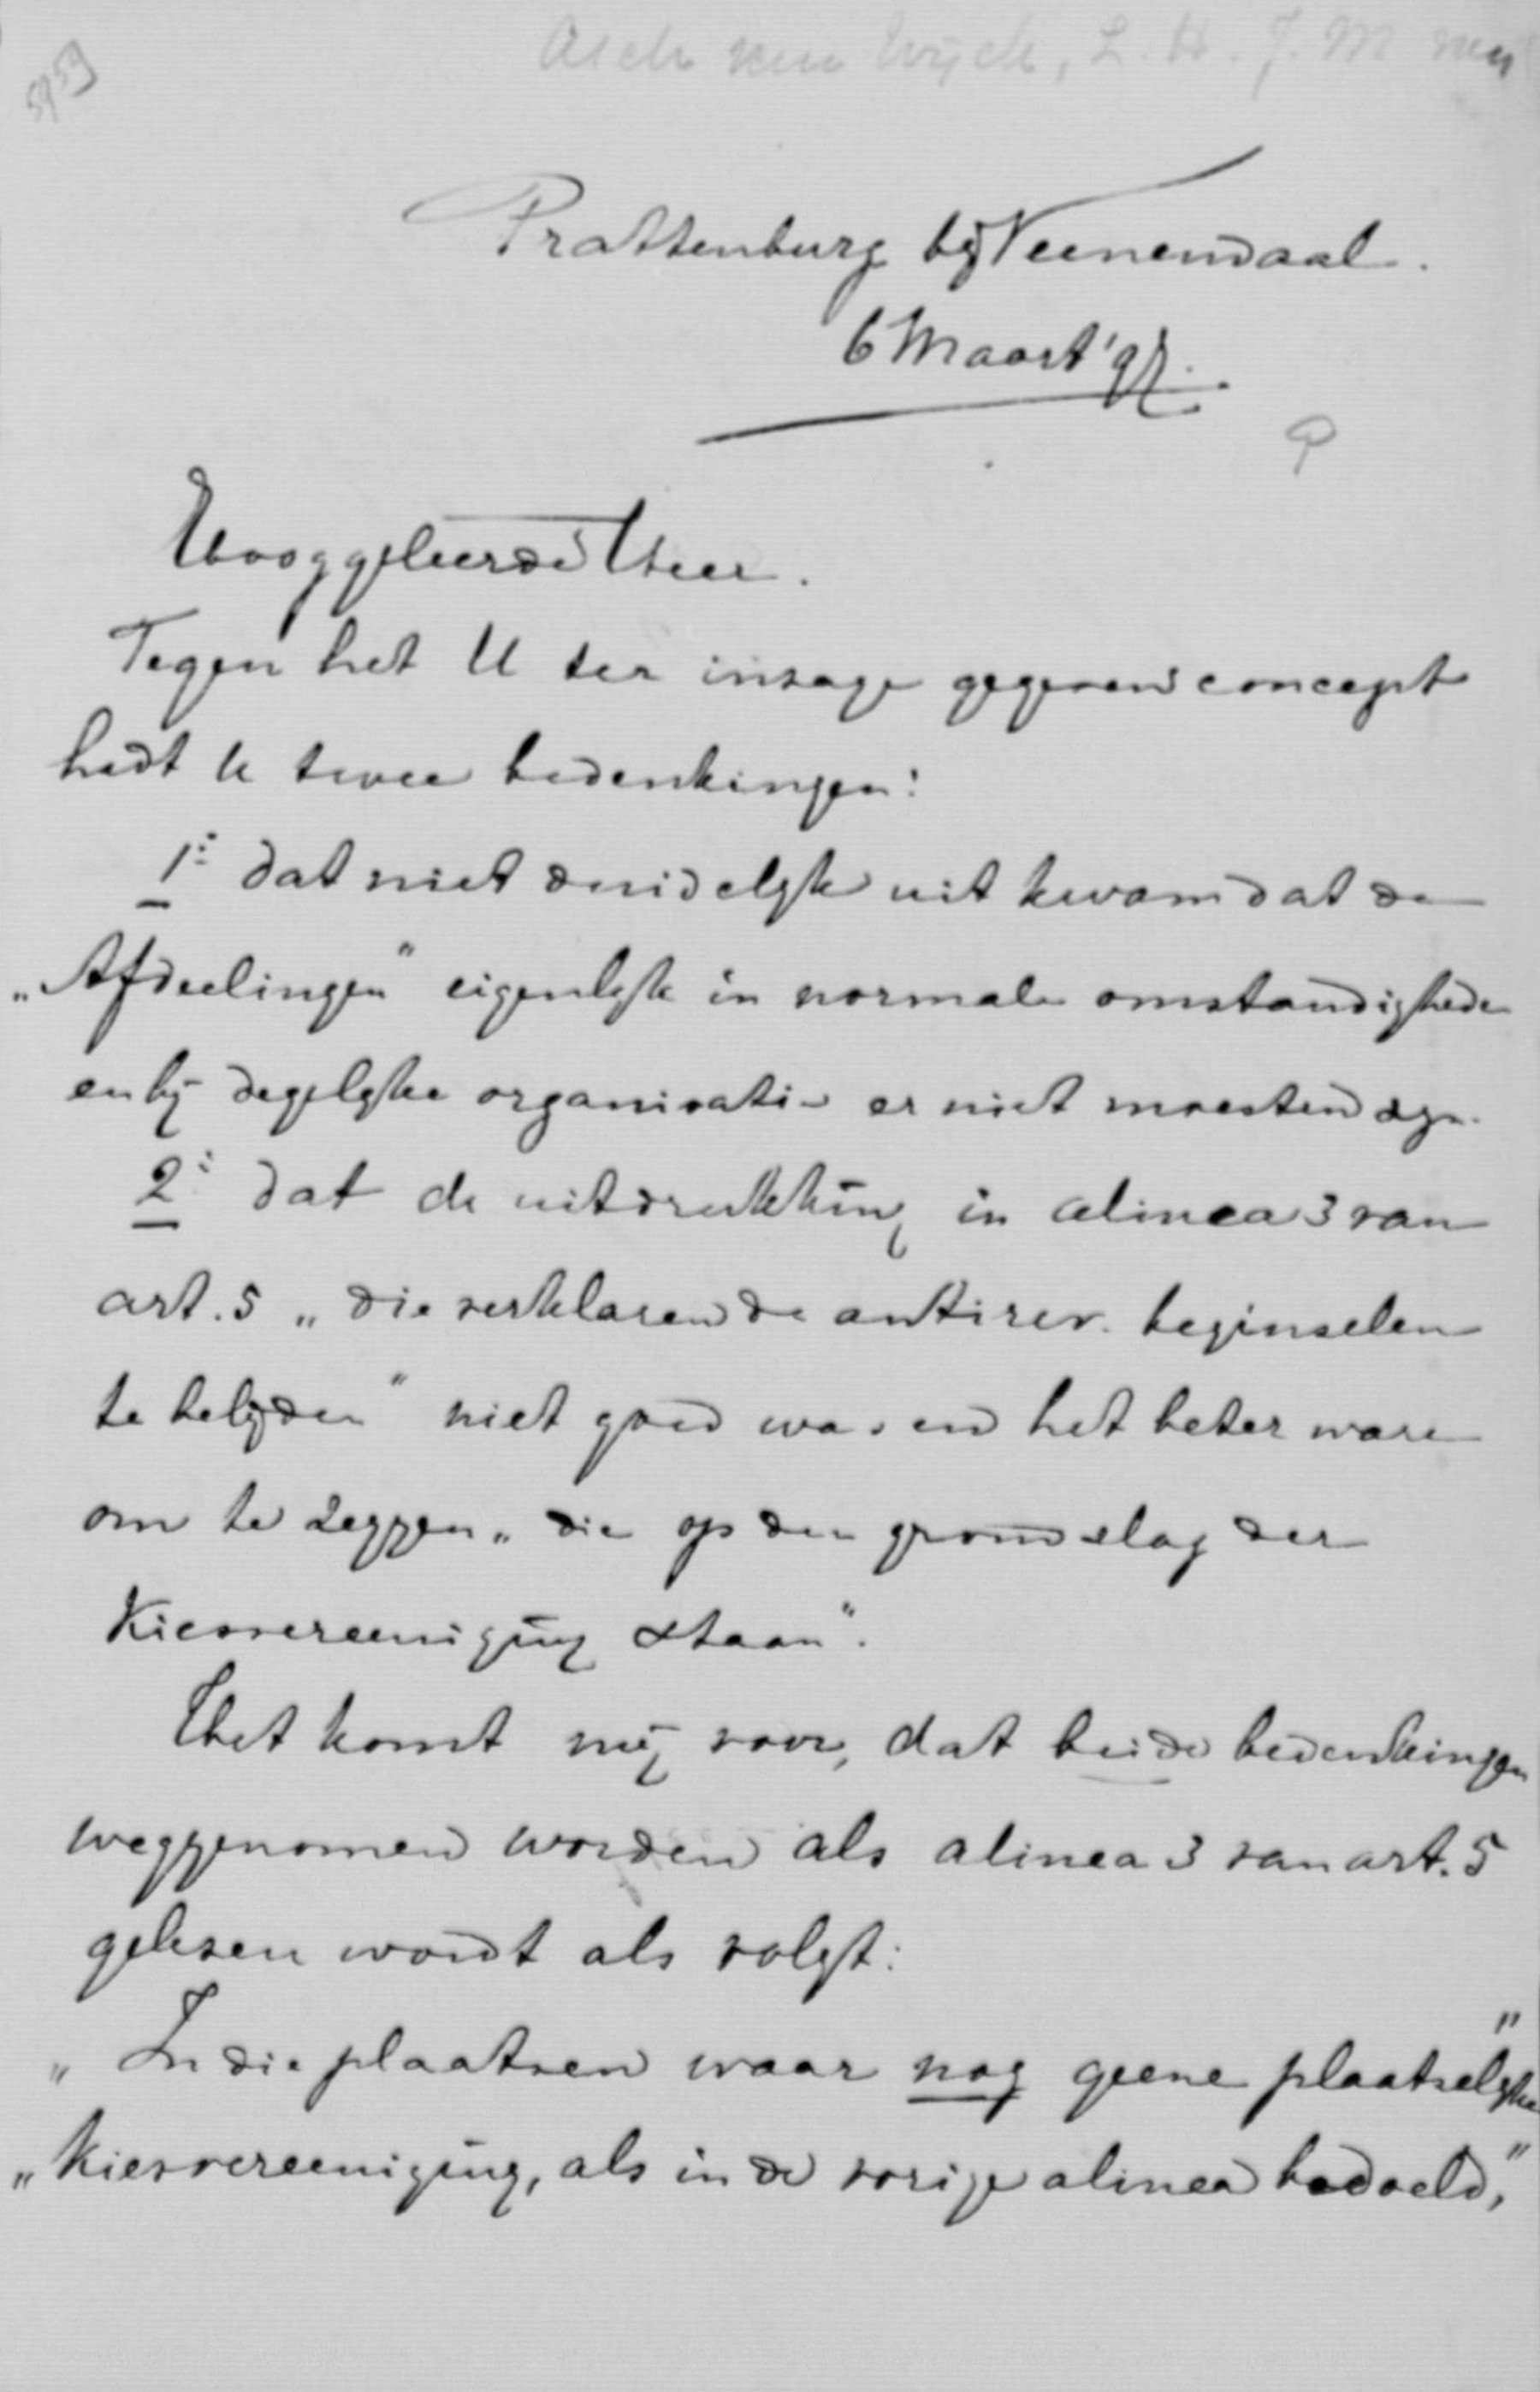 5959
Asch van Wijck, L. H. J. M van
Prattenburg bij Veenendaal.
6 Maart '97.
Hooggeleerde Heer.
Tegen het U ter inzage gegeven concept
hadt U twee bedenkingen:
1° dat niet duidelijk uit kwam dat de
„Afdeelingen" eigenlijk in normale omstandigheden
en bij degelijke organisatie er niet moesten zijn.
2° dat de uitdrukking in alinea 3 van
art. 5 „die verklaren de antirev. beginselen
te belijden" niet goed was en het beter ware
om te zeggen „die op den grondslag der
Kiesvereeniging staan".
Het komt mij voor, dat beide bedenkingen
weggenomen worden als alinea 3 van art. 5
gelezen wordt als volgt:
„In die plaatsen waar nog geene plaatselijke"
„Kiesvereeniging, als in de vorige alinea bedoeld,"